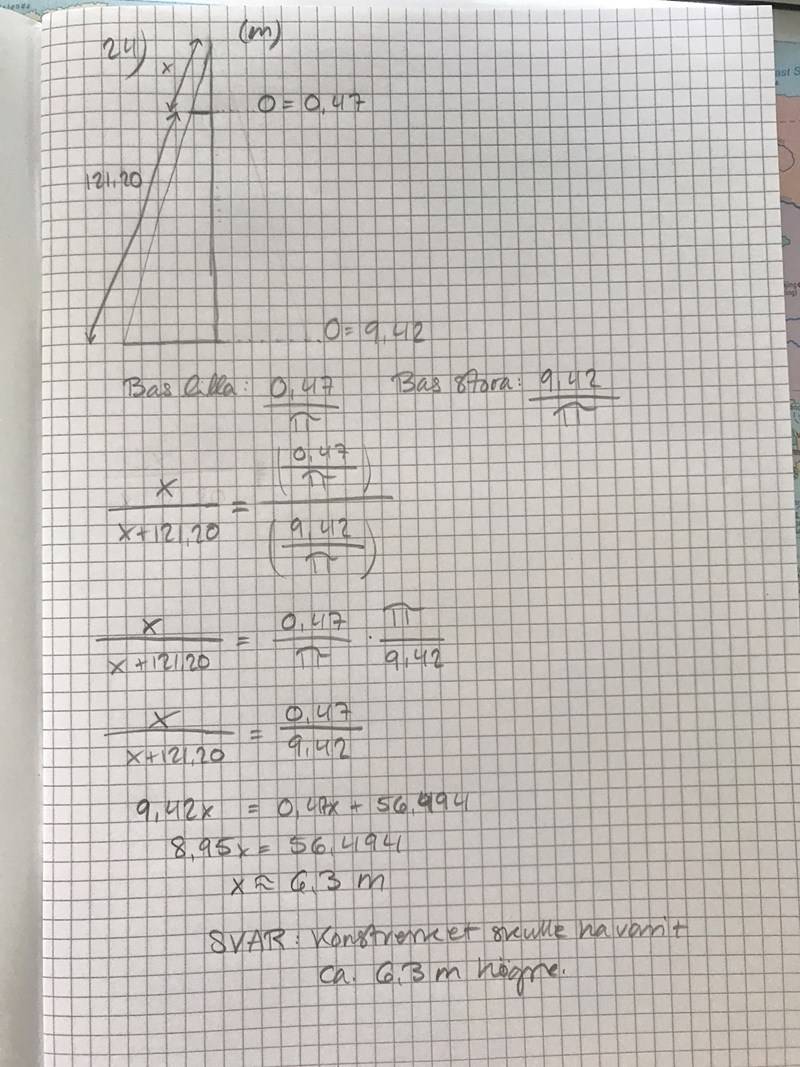 24) (m)
x
O = 0,47
121,20
O = 9,42
Bas lilla: 0,47/π Bas stora: 9,42/π
x/(x+121,20) = (0,47/π)/(9,42/π)
x/(x+121,20) = 0,47/π · π/9,42
x/(x+121,20) = 0,47/9,42
9,42x = 0,47x + 56,494
8,95x = 56,494
x ≈ 6,3 m
SVAR: Konstverket skulle ha varit
ca. 6,3 m högre.